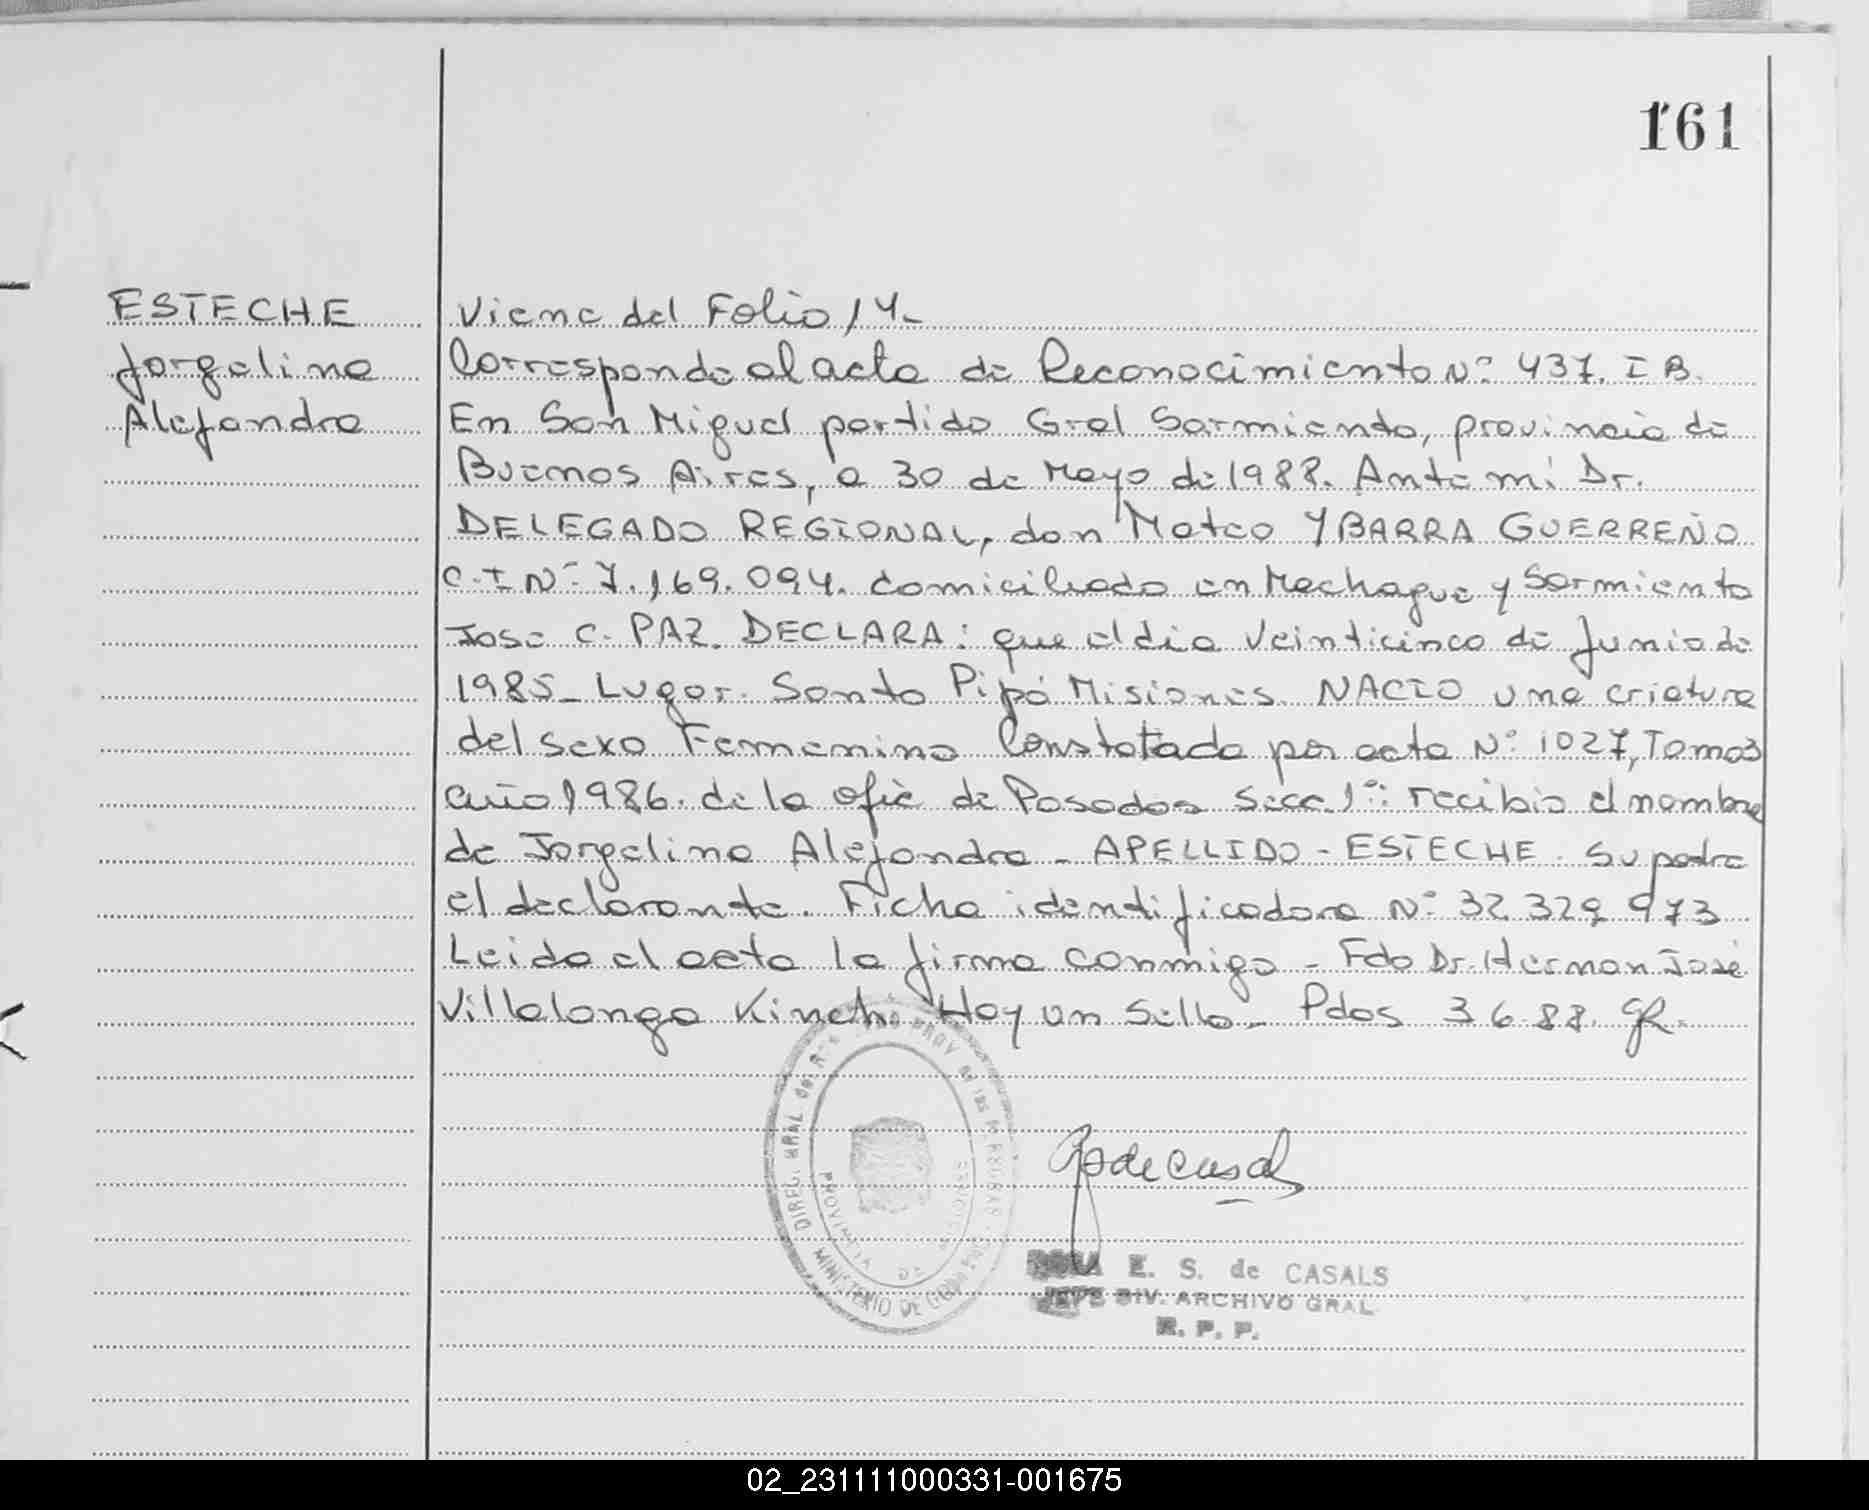 161
ESTECHE
Jorgelina
Alejandra
Viene del Folio 14-
Corresponde al acta de Reconocimiento Nº 437. I B.
En San Miguel partido Gral Sarmiento, provincia de
Buenos Aires, a 30 de Mayo de 1988. Ante mi Dr.
DELEGADO REGIONAL, don Mateo YBARRA GUERREÑO
C.I Nº 7.169.094. domiciliado en Mechague y Sarmiento
Jose C. PAZ. DECLARA: que el dia veinticinco de Junio de
1985- Lugar. Santo Pipó Misiones. NACIO una criatura
del sexo Femenino Constatada por acta Nº 1027, Tomo3
año 1986. de la ofic de Posadas Secc. 1º: recibio el nombre
de Jorgelina Alejandra - APELLIDO - ESTECHE. Su padre
el declarante. Ficha identificadora Nº 32 329 973
Leida el acta la firma conmigo - Fdo Dr. Hernan José
Villalonga Kinch. Hay un Sello- Pdas 3 6 88.
DIREG. GRAL del PROV de las PERSONAS
MINISTERIO DE GOB
PROVINCIA DE MISIONES
E. S. de CASALS
JEFE DIV. ARCHIVO GRAL
R. P. P.
02_231111000331-001675